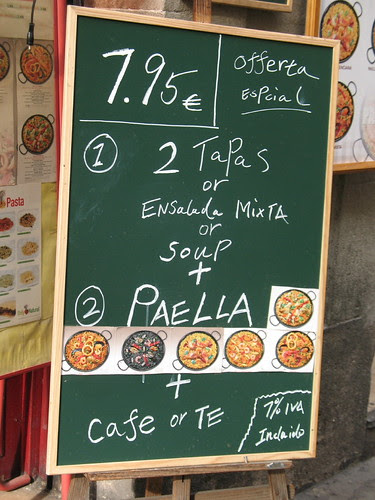 7.95€
offerta
Espcial
1
2 Tapas
or
Ensalada MixTA
or
Soup
+
2 PAELLA
+
Cafe or TE
7% IVA
Incluido
Pasta